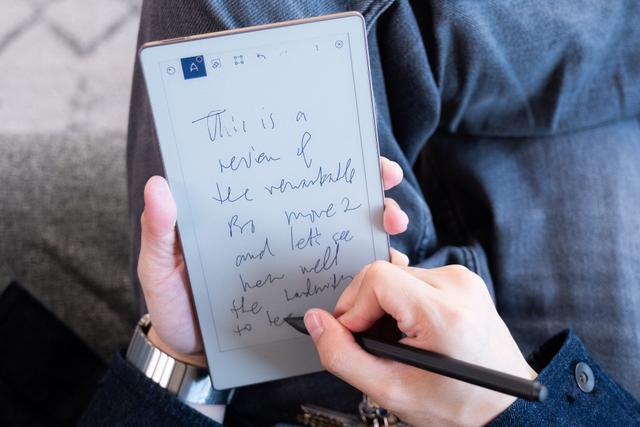 A
This is a
review of
the remarkable
Pro move 2
and lets see
how well
the
to